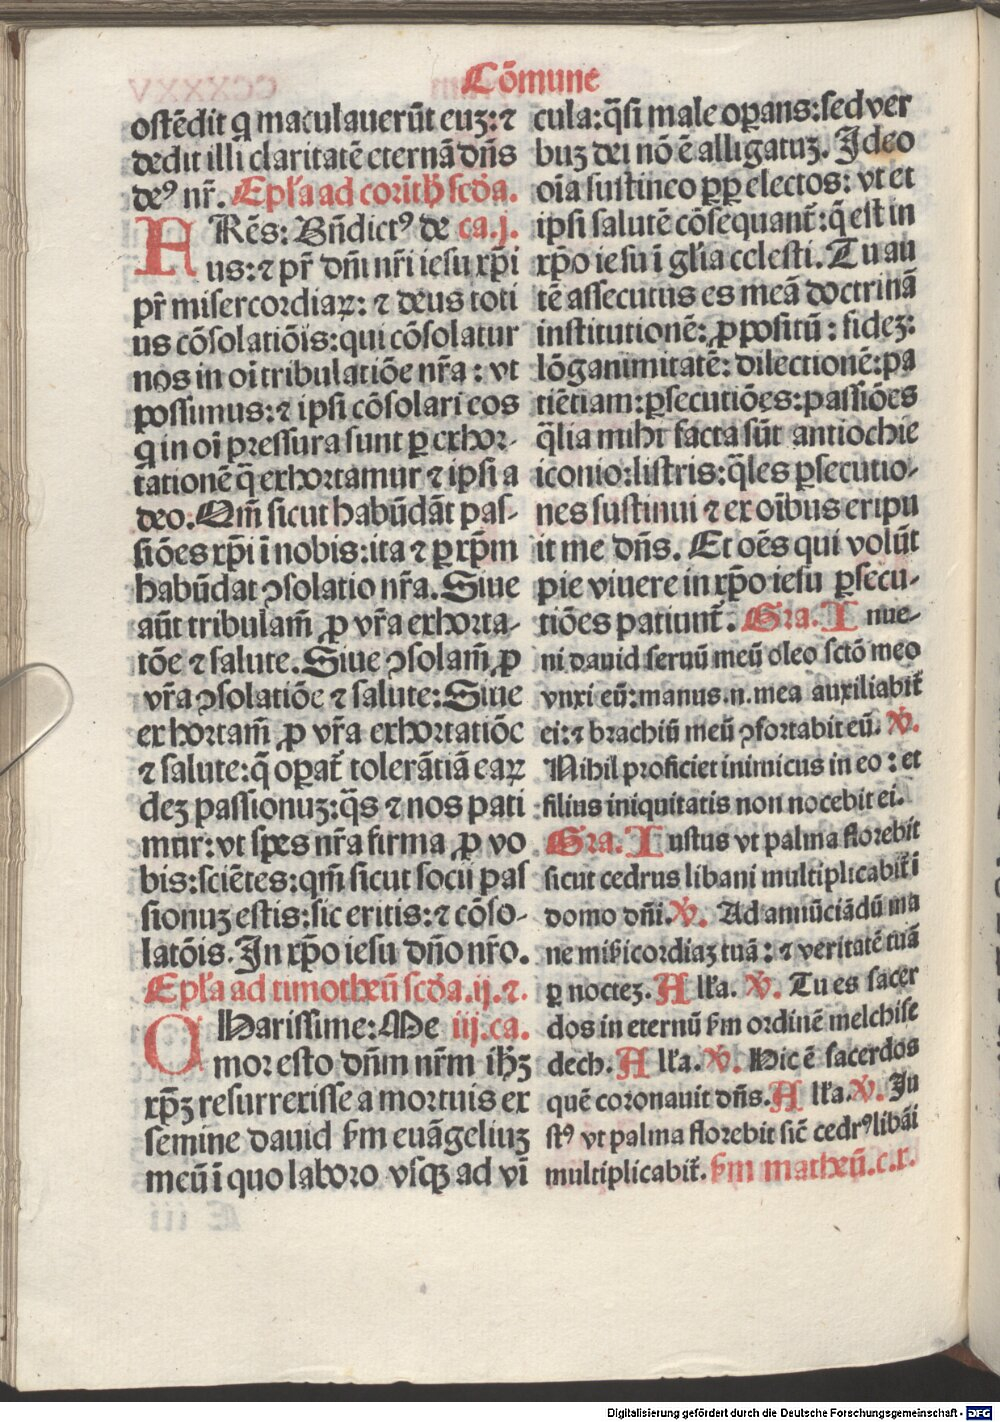 Cōmune
ostēdit q maculauerūt euꝫ: ⁊
dedit illi claritatē eternā dn̄s
deꝰ nr̄. Epl̄a ad corīth̄ scd̄a.
FRēs: Bn̄dictꝰ de ca.j.
us: ⁊ pr̄ dn̄i nr̄i iesu xp̄i
pr̄ misercordiaꝝ: ⁊ deus toti
us cōsolatiōis: qui cōsolatur
nos in oī tribulatiōe nr̄a: vt
possimus: ⁊ ipsi cōsolari eos
q in oī pressura sunt ꝑ exhor-
tationē q̄ exhortamur ⁊ ipsi a
deo. Qm̄ sicut habūdāt pas-
siōes xp̄i ī nobis: ita ⁊ ꝑ xp̄m
habūdat ꝯsolatio nr̄a. Siue
aūt tribulam̄ ꝓ vr̄a exhorta-
tōe ⁊ salute. Siue ꝯsolam̄ ꝓ
vr̄a ꝯsolatiōe ⁊ salute: Siue
exhortam̄ ꝓ vr̄a exhortatiōe
⁊ salute: q̄ oꝑat̄ tolerātiā eaꝝ
deꝫ passionuꝫ: q̄s ⁊ nos pati
mur: vt spes nr̄a firma ꝓ vo
bis: sciētes: qm̄ sicut socii pas
sionuꝫ estis: sic eritis: ⁊ cōso-
latōis. In xp̄o iesu dn̄o nr̄o.
Epl̄a ad timotheū scd̄a.ij.⁊.
CHarissime: Me iij.ca.
mor esto dn̄m nr̄m ih̄ꝫ
xp̄ꝫ resurrexisse a mortuis ex
semine dauid ẜm euāgeliuꝫ
meū ī quo laboro vsqꝫ ad vī
cula: q̄si male oꝑans: sed ver
buꝫ dei nō ē alligatuꝫ. Ideo
oīa sustineo ꝓpꝑ electos: vt et
ipsi salutē cōsequant̄: q̄ est in
xp̄o iesu ī gl̄ia celesti. Tu au
tē assecutus es meā doctrinā
institutionē: ꝓpositū: fideꝫ:
lōganimitatē: dilectionē: pa
tiētiam: ꝑsecutiōes: passiōes
q̄lia mihi facta sūt antiochie
iconio: listris: q̄les ꝑsecutio-
nes sustinui ⁊ ex oībus eripu
it me dn̄s. Et oēs qui volūt
pie viuere in xp̄o iesu ꝑsecu-
tiōes patiunt̄. Gra. Inue-
ni dauid seruū meū oleo sctō meo
vnxi eū: manus.n. mea auxiliabit̄
ei: ⁊ brachiū meū ꝯfortabit eū. V̄.
Nihil proficiet inimicus in eo: et
filius iniquitatis non nocebit ei.
Gra. Iustus vt palma florebit
sicut cedrus libani multiplicabit̄ ī
domo dn̄i. V̄. Ad annūciādū ma
ne mīscd̄iaꝫ tuā: ⁊ veritatē tuā
ꝑ nocteꝫ. All̄a. V̄. Tu es sacer
dos in eternū ẜm ordinē melchise
dech. All̄a. V̄. Hic ē sacerdos
quē coronauit dn̄s. All̄a. V̄. Iu
stꝰ vt palma florebit sic̄ cedrꝰ libāi
multiplicabit̄. ẜm matheū.c.x.
Digitalisierung gefördert durch die Deutsche Forschungsgemeinschaft - DFG